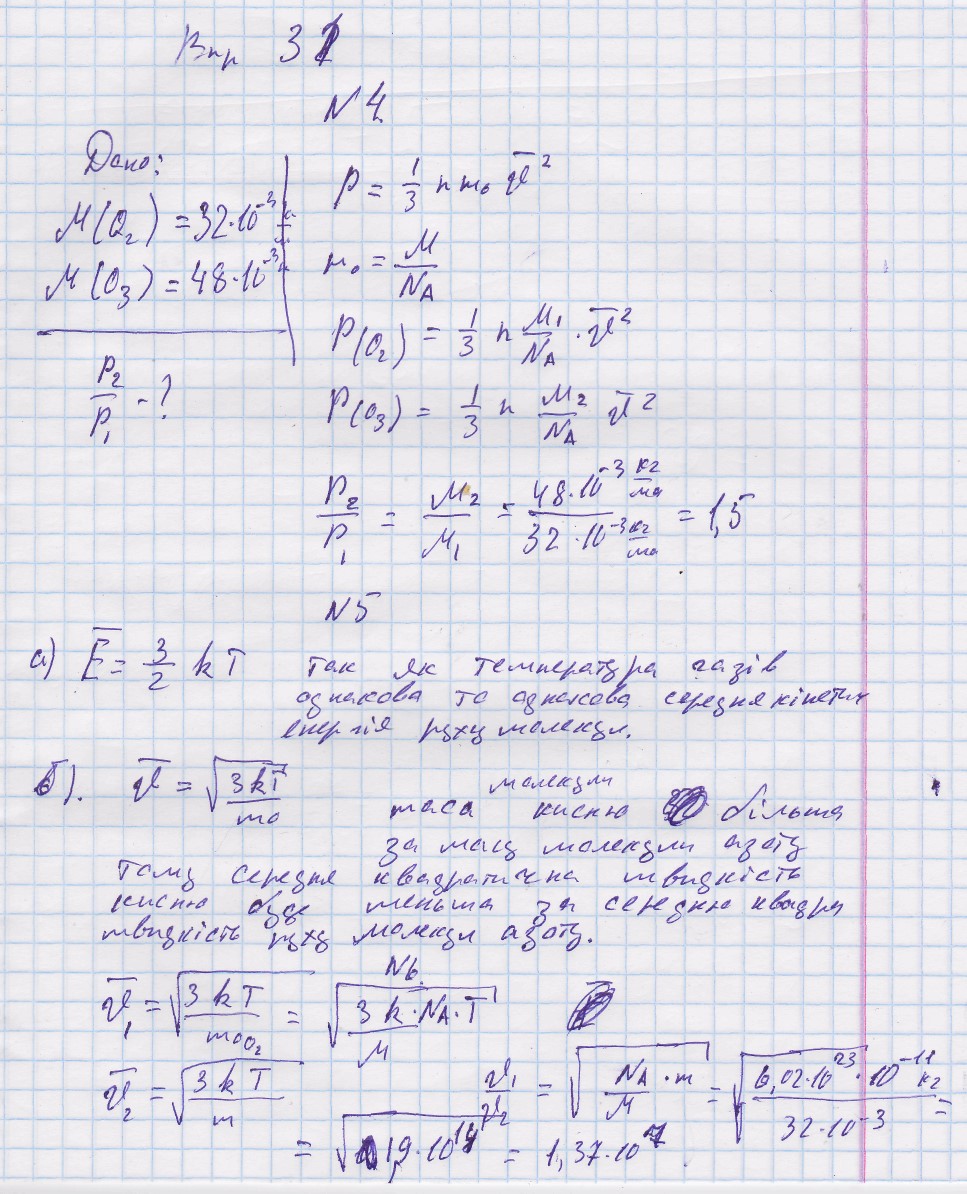 Впр 31
N 4
Дано:
M(O₂) = 32·10⁻³
M(O₃) = 48·10⁻³
P₂/P₁ - ?
P = 1/3 n m₀ v̄²
m₀ = M/N_A
P(O₂) = 1/3 n M₁/N_A · v̄²
P(O₃) = 1/3 n M₂/N_A v̄²
P₂/P₁ = M₂/M₁ = 48·10⁻³ кг/мо / 32·10⁻³ кг/мо = 1,5
N5
а) Ē = 3/2 kT Так як температура газів
однакова то однакова середня кінетич
енергія руху молекул.
б). v̄ = √(3kT/m₀) маса молекули кисню більша
за масу молекули азоту
тому середня квадратична швидкість
кисню буде меньша за середню квадра
швидкість руху молекул азоту.
N6.
v̄₁ = √(3kT/m₀O₂) = √(3k·N_A·T/M)
v̄₂ = √(3kT/m) v₁/v₂ = √(N_A·m/M) = √(6,02·10²³·10⁻¹¹ кг/32·10⁻³) =
= √(1,9·10¹⁴) = 1,37·10⁷